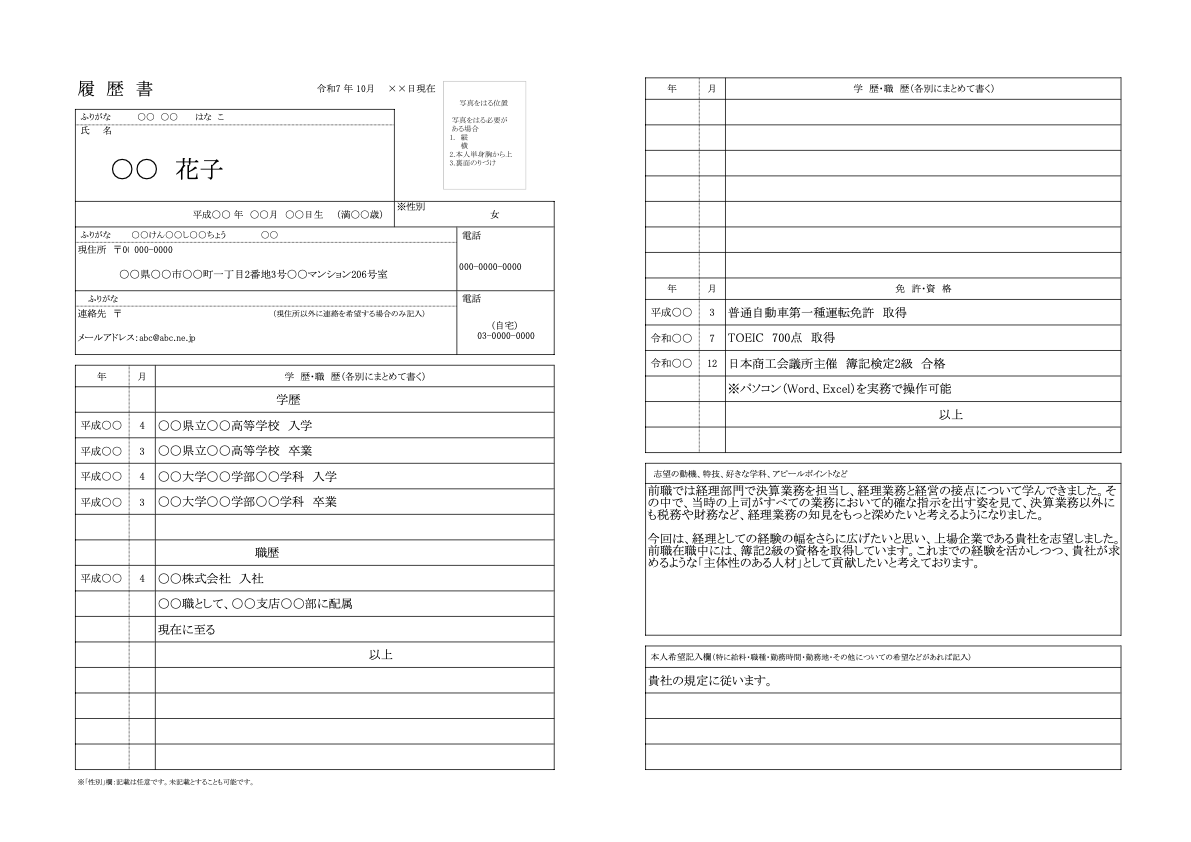 履 歴 書
令和7 年 10月 ××日現在
写真をはる位置
写真をはる必要が
ある場合
1. 縦
横
2.本人単身胸から上
3.裏面のりづけ
ふりがな 〇〇 〇〇 はな こ
氏 名
〇〇 花子
平成〇〇 年 〇〇月 〇〇日生 (満〇〇歳)
※性別
女
ふりがな 〇〇けん〇〇し〇〇ちょう 〇〇
現住所 〒0( 000-0000
〇〇県〇〇市〇〇町一丁目2番地3号〇〇マンション206号室
電話
000-0000-0000
ふりがな
連絡先 〒 (現住所以外に連絡を希望する場合のみ記入)
メールアドレス:abc@abc.ne.jp
電話
(自宅)
03-0000-0000
年 月 学 歴・職 歴(各別にまとめて書く)
学歴
平成〇〇 4 〇〇県立〇〇高等学校 入学
平成〇〇 3 〇〇県立〇〇高等学校 卒業
平成〇〇 4 〇〇大学〇〇学部〇〇学科 入学
平成〇〇 3 〇〇大学〇〇学部〇〇学科 卒業
職歴
平成〇〇 4 〇〇株式会社 入社
〇〇職として、〇〇支店〇〇部に配属
現在に至る
以上
※「性別」欄:記載は任意です。未記載とすることも可能です。
年 月 学 歴・職 歴(各別にまとめて書く)
年 月 免 許・資 格
平成〇〇 3 普通自動車第一種運転免許 取得
令和〇〇 7 TOEIC 700点 取得
令和〇〇 12 日本商工会議所主催 簿記検定2級 合格
※パソコン(Word、Excel)を実務で操作可能
以上
志望の動機、特技、好きな学科、アピールポイントなど
前職では経理部門で決算業務を担当し、経理業務と経営の接点について学んできました。そ
の中で、当時の上司がすべての業務において的確な指示を出す姿を見て、決算業務以外に
も税務や財務など、経理業務の知見をもっと深めたいと考えるようになりました。
今回は、経理としての経験の幅をさらに広げたいと思い、上場企業である貴社を志望しました。
前職在職中には、簿記2級の資格を取得しています。これまでの経験を活かしつつ、貴社が求
めるような「主体性のある人材」として貢献したいと考えております。
本人希望記入欄(特に給料・職種・勤務時間・勤務地・その他についての希望などがあれば記入)
貴社の規定に従います。